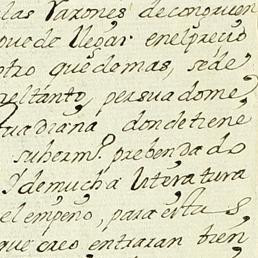 las Varones de congruen
puede llegar en el precio
otro que demas, se de
el tanto, persuadome
uadiana donde tiene
su herm.º prebendado
Y de mucha literatura
el empeño, para esta s
que creo entraran bien